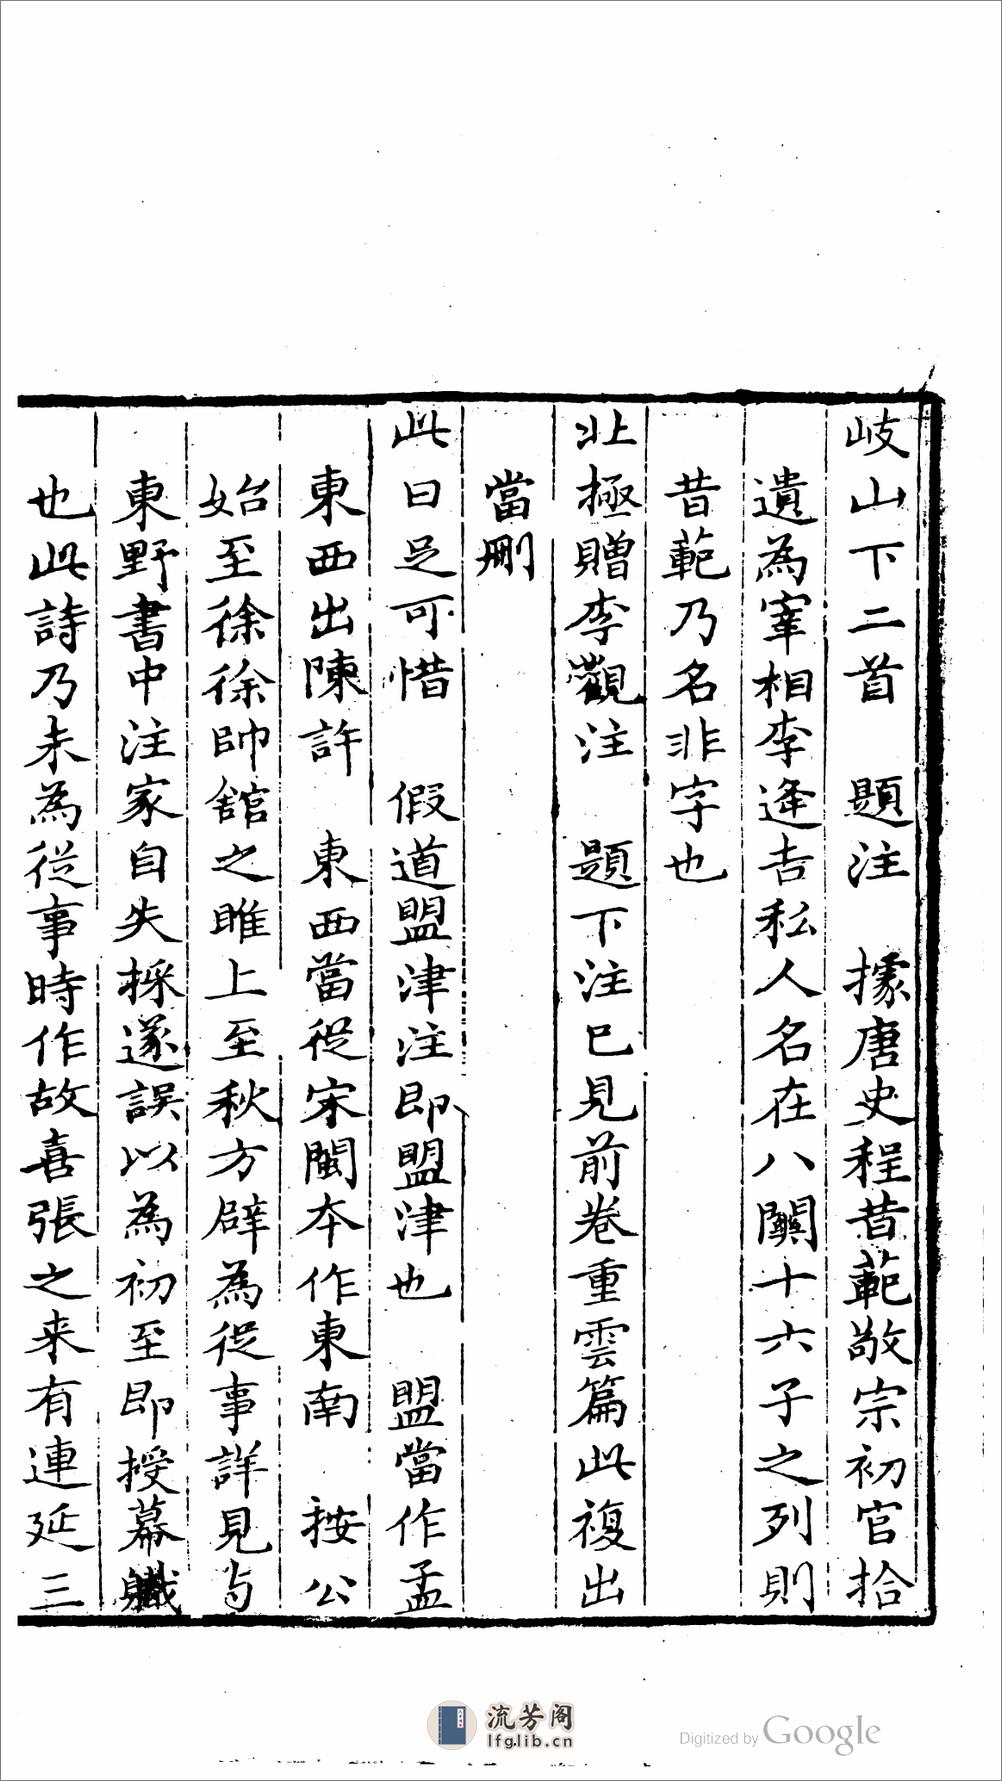 岐山下二首　題注　據唐史程昔範敬宗初官拾
遺為宰相李逢吉私人名在八關十六子之列則
昔範乃名非字也
北極贈李觀注　題下注已見前卷重雲篇此複出
當刪
此日足可惜　假道盟津注即盟津也　盟當作孟
東西出陳許　東西當從宋閩本作東南　按公
始至徐徐帥館之睢上至秋方辟為從事詳見与
東野書中注家自失採遂誤以為初至即授幕職
也此詩乃未為從事時作故喜張之来有連延三
流芳阁
lfglib.cn
Digitized by Google